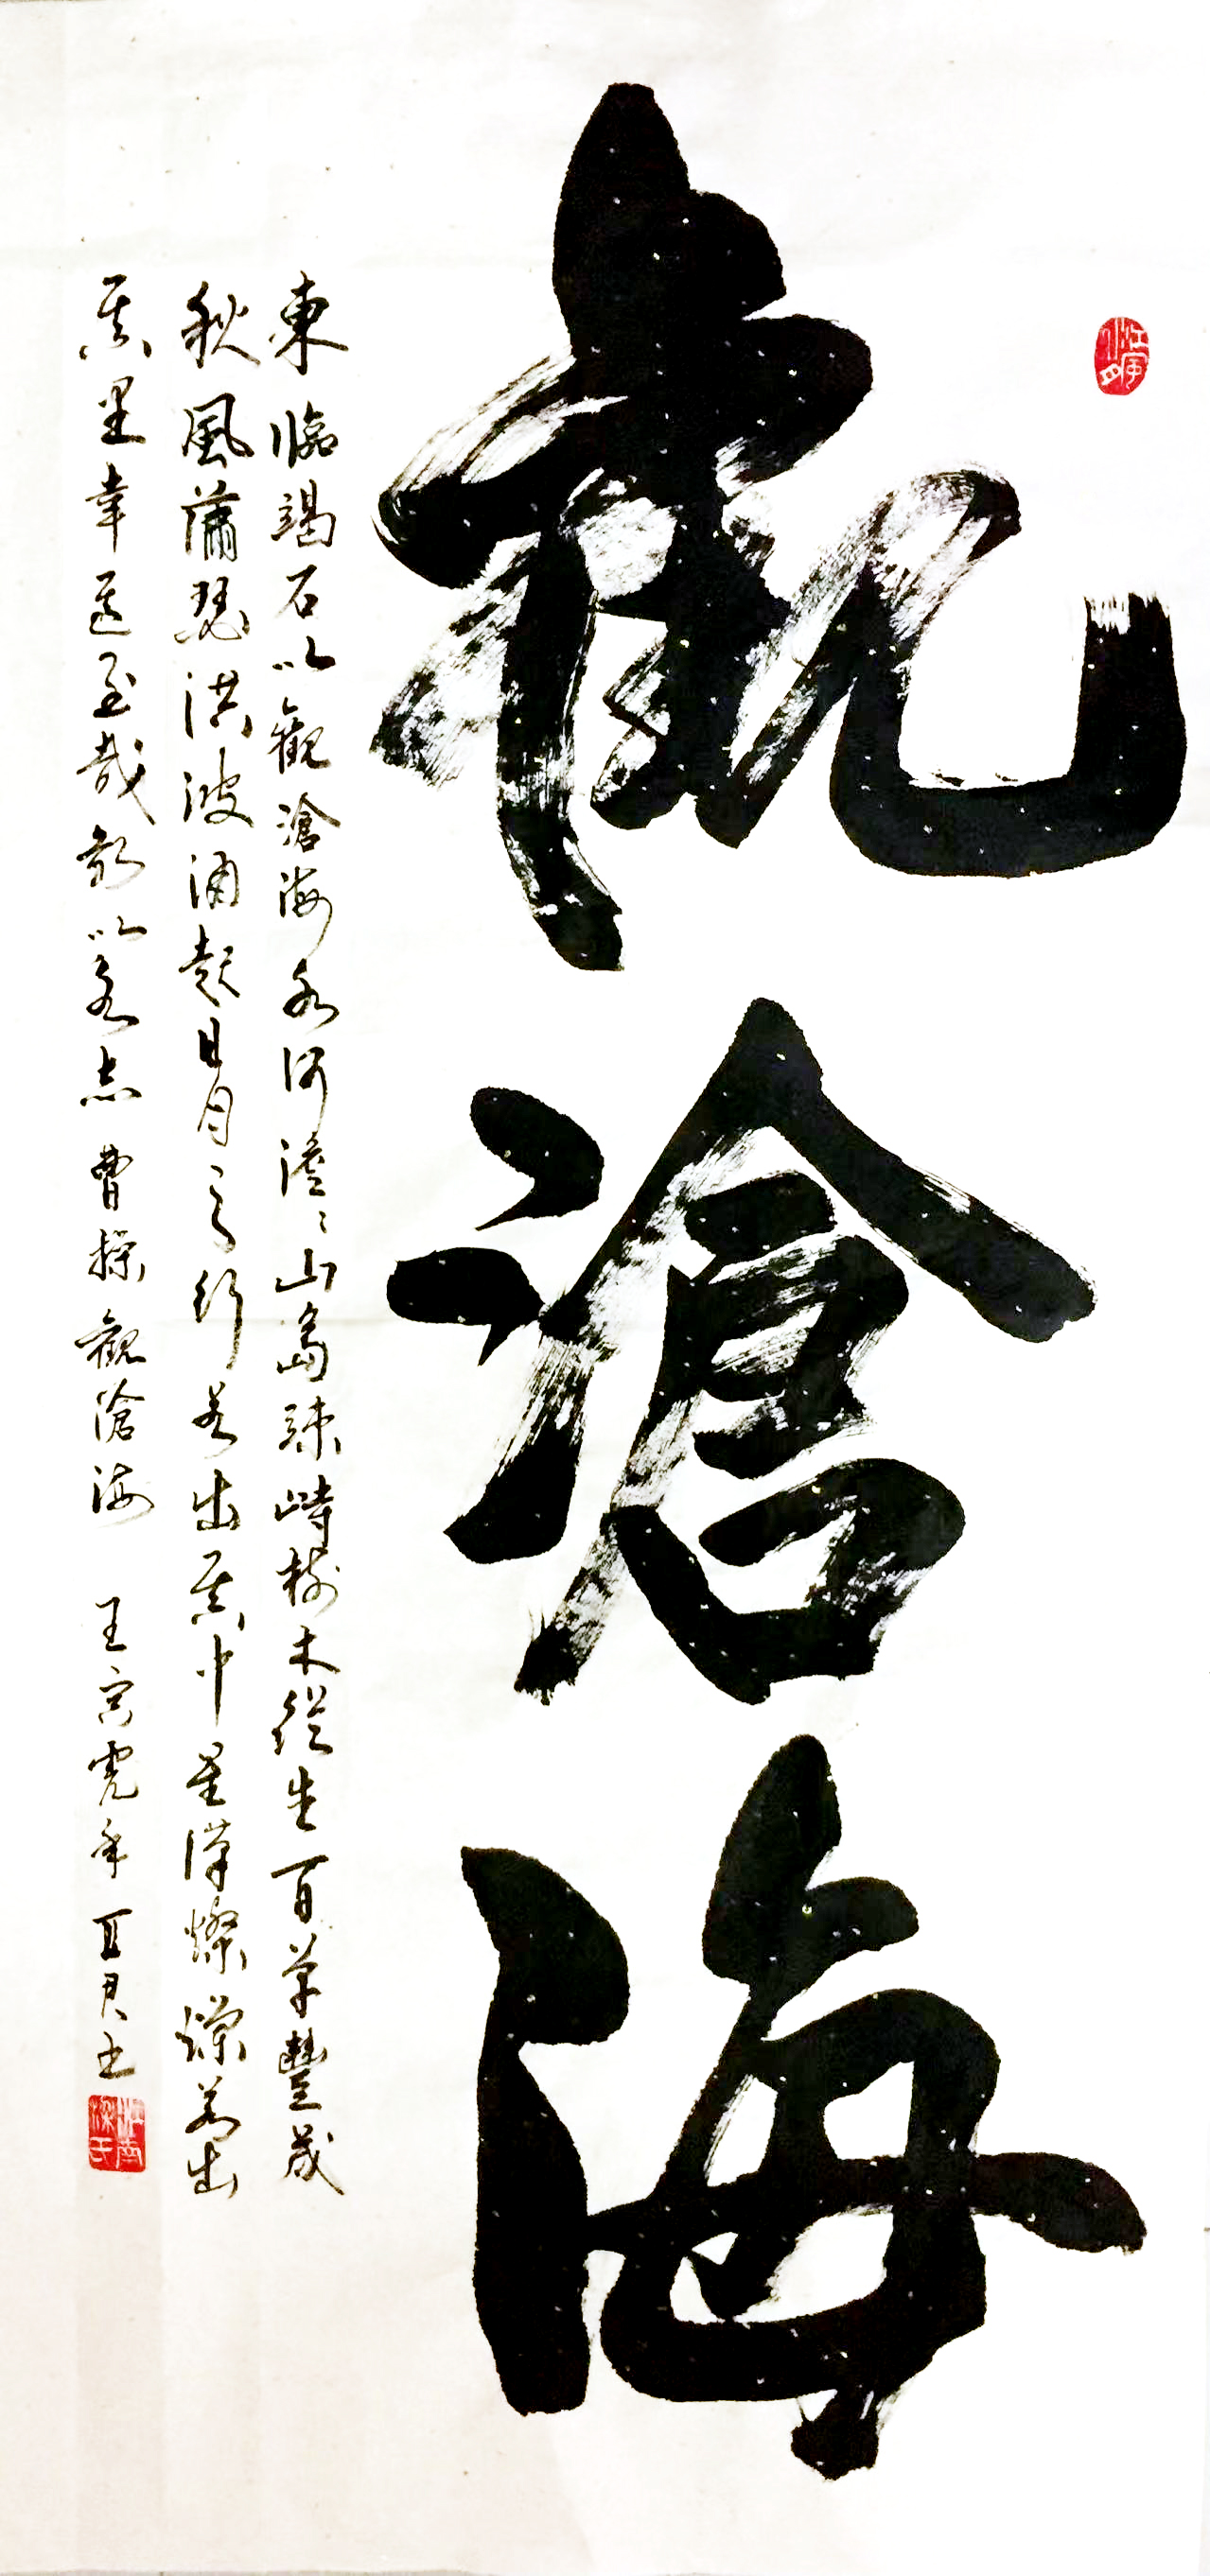 觀滄海
東臨碣石以觀滄海水何澹〻山島竦峙樹木叢生百草豐茂
秋風蕭瑟洪波涌起日月之行若出其中星漢燦爛若出
其里幸甚至哉歌以詠志 曹操觀滄海 壬寅虎年 君书